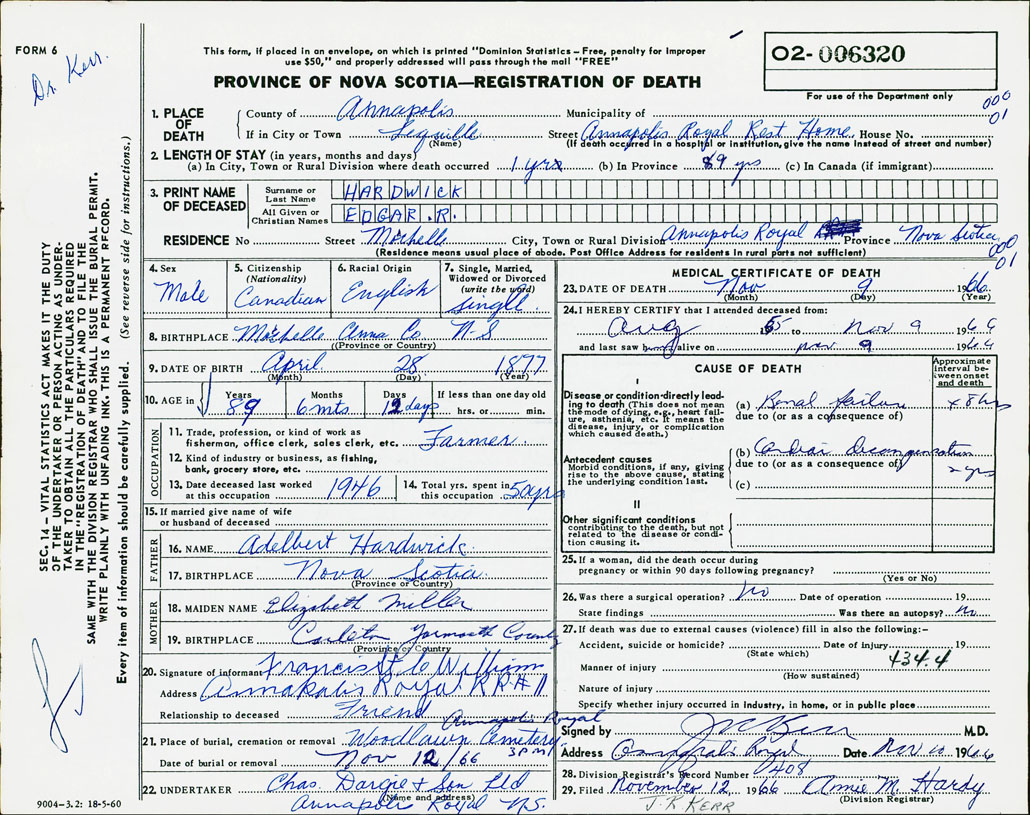 FORM 6
Dr. Kerr.
This form, if placed in an envelope, on which is printed "Dominion Statistics – Free, penalty for improper
use $50," and properly addressed will pass through the mail "FREE"
PROVINCE OF NOVA SCOTIA—REGISTRATION OF DEATH
02-006320
For use of the Department only
000
01
1. PLACE OF DEATH
County of Annapolis Municipality of
If in City or Town Lequille Street Annapolis Royal Rest Home House No.
(Name) (If death occurred in a hospital or institution, give the name instead of street and number)
2. LENGTH OF STAY (in years, months and days)
(a) In City, Town or Rural Division where death occurred 1 yrs (b) In Province 89 yrs (c) In Canada (if immigrant)
3. PRINT NAME OF DECEASED
Surname or Last Name HARDWICK
All Given or Christian Names EDGAR. R.
RESIDENCE No Street Mochelle City, Town or Rural Division Annapolis Royal Province Nova Scotia
(Residence means usual place of abode. Post Office Address for residents in rural parts not sufficient)
000
01
4. Sex
Male
5. Citizenship
(Nationality)
Canadian
6. Racial Origin
English
7. Single, Married,
Widowed or Divorced
(write the word)
Single
8. BIRTHPLACE Mochelle Anna Co. N-S
(Province or Country)
9. DATE OF BIRTH April 28 1877
(Month) (Day) (Year)
10. AGE in
Years 89
Months 6 mts
Days 12 days
If less than one day old
hrs. or min.
OCCUPATION
11. Trade, profession, or kind of work as
fisherman, office clerk, sales clerk, etc. Farmer
12. Kind of industry or business, as fishing,
bank, grocery store, etc.
13. Date deceased last worked
at this occupation 1946
14. Total yrs. spent in
this occupation 50 yrs
15. If married give name of wife
or husband of deceased
FATHER
16. NAME Adelbert Hardwick
17. BIRTHPLACE Nova Scotia
(Province or Country)
MOTHER
18. MAIDEN NAME Elizabeth Miller
19. BIRTHPLACE Carleton Yarmouth County
(Province or Country
20. Signature of informant Francis William
Address Annapolis Royal RR#1
Relationship to deceased Friend
21. Place of burial, cremation or removal Woodlawn Cemetery Annapolis Royal
Date of burial or removal Nov 12/66 3 P.M.
22. UNDERTAKER Chas. Dargie & Son Ltd
(Name and address)
Annapolis Royal N.S.
9004–3.2: 18-5-60
MEDICAL CERTIFICATE OF DEATH
23. DATE OF DEATH Nov 9 1966
(Month) (Day) (Year)
24. I HEREBY CERTIFY that I attended deceased from:
Aug 65 to Nov 9 1966
and last saw him alive on Nov 9 1966
CAUSE OF DEATH
Approximate
interval be-
tween onset
and death
I
Disease or condition directly lead-
ing to death (This does not mean
the mode of dying, e.g., heart fail-
ure, asthenia, etc. It means the
disease, injury, or complication
which caused death.)
(a) Renal failure 48 hrs
due to (or as a consequence of)
Antecedent causes
Morbid conditions, if any, giving
rise to the above cause, stating
the underlying condition last.
(b) Cardiac decompensation 2 yrs
due to (or as a consequence of)
(c)
II
Other significant conditions
contributing to the death, but not
related to the disease or condi-
tion causing it.
25. If a woman, did the death occur during
pregnancy or within 90 days following pregnancy?
(Yes or No)
26. Was there a surgical operation? No Date of operation 19
State findings Was there an autopsy? No
27. If death was due to external causes (violence) fill in also the following:–
Accident, suicide or homicide? Date of injury 19
(State which)
434.4
Manner of injury
(How sustained)
Nature of injury
Specify whether injury occurred in Industry, in home, or in public place
Signed by J R Kerr M.D.
Address Annapolis Royal Date Nov 10 1966
28. Division Registrar's Record Number 408
29. Filed November 12, 1966 Annie M. Hardy
(Division Registrar)
J. R KERR
SEC. 14 – VITAL STATISTICS ACT MAKES IT THE DUTY
OF THE UNDERTAKER OR PERSON ACTING AS UNDER-
TAKER TO OBTAIN ALL THE PARTICULARS REQUIRED
IN THE "REGISTRATION OF DEATH" AND TO FILE THE
SAME WITH THE DIVISION REGISTRAR WHO SHALL ISSUE THE BURIAL PERMIT.
WRITE PLAINLY WITH UNFADING INK. THIS IS A PERMANENT RECORD.
Every item of information should be carefully supplied. (See reverse side for instructions.)